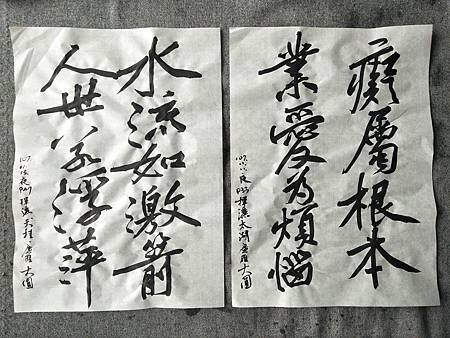 癡屬根本
業愛為煩惱
水流如激箭
人世若浮萍